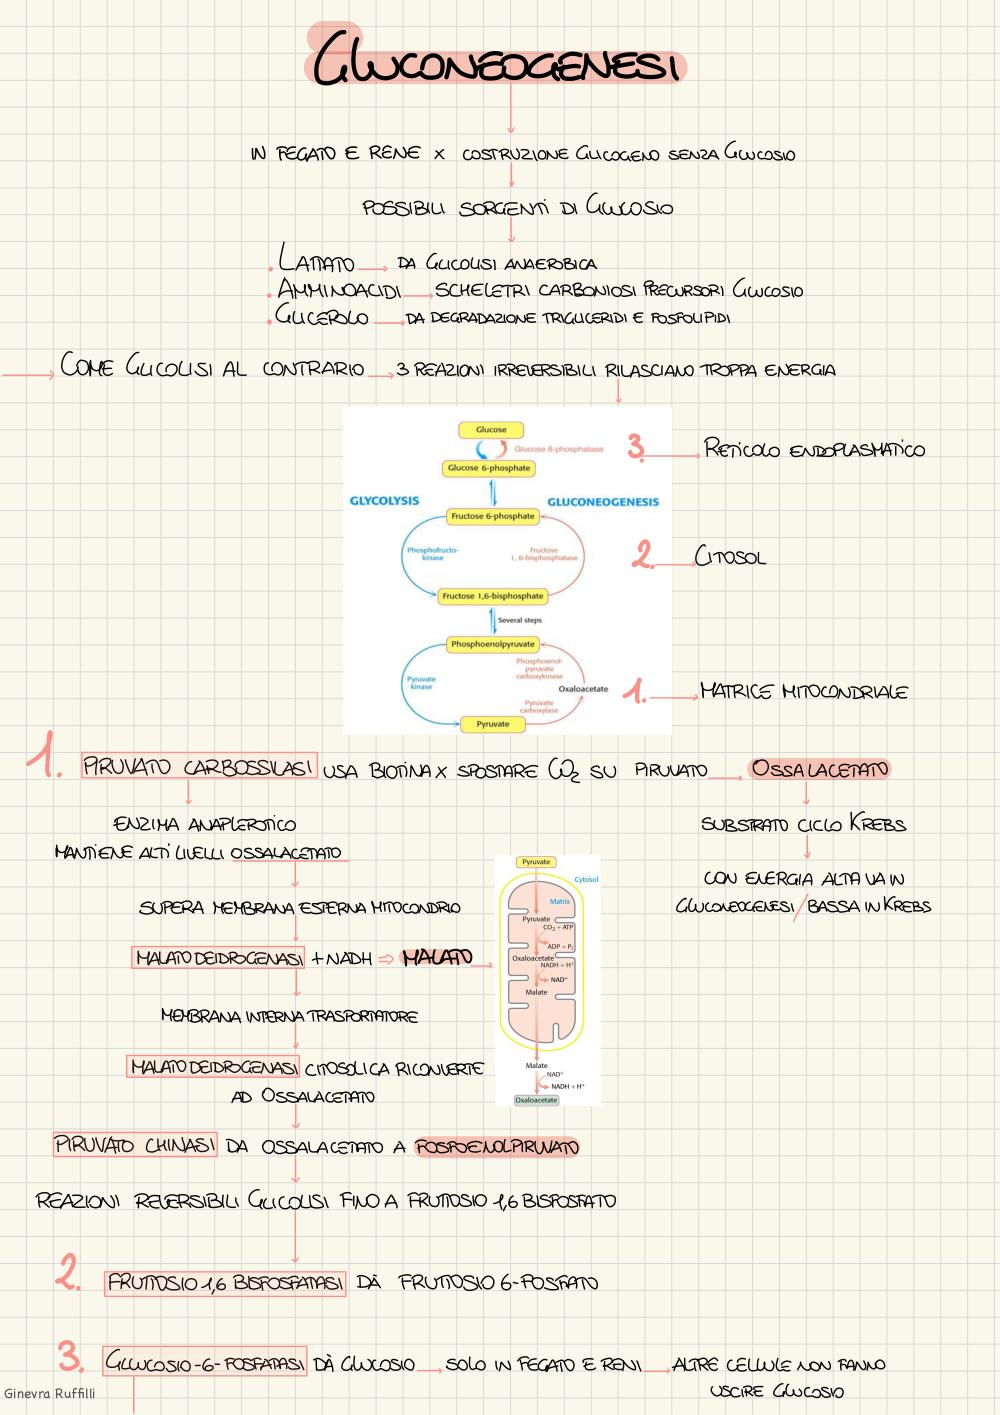 GLUCONEOGENESI
IN FEGATO E RENE X COSTRUZIONE GLICOGENO SENZA GLUCOSIO
POSSIBILI SORGENTI DI GLUCOSIO
. LATTATO → DA GLICOLISI ANAEROBICA
. AMMINOACIDI → SCHELETRI CARBONIOSI PRECURSORI GLUCOSIO
. GLICEROLO → DA DEGRADAZIONE TRIGLICERIDI E FOSFOLIPIDI
→ COME GLICOLISI AL CONTRARIO → 3 REAZIONI IRREVERSIBILI RILASCIANO TROPPA ENERGIA
Glucose
Glucose 6-phosphatase
3. → RETICOLO ENDOPLASMATICO
Glucose 6-phosphate
GLYCOLYSIS
GLUCONEOGENESIS
Fructose 6-phosphate
Phosphofructo-
kinase
Fructose
1, 6-bisphosphatase
2. → CITOSOL
Fructose 1,6-bisphosphate
Several steps
Phosphoenolpyruvate
Phosphoenol-
pyruvate
carboxykinase
Pyruvate
kinase
Oxaloacetate
1. → MATRICE MITOCONDRIALE
Pyruvate
carboxylase
Pyruvate
1. PIRUVATO CARBOSSILASI USA BIOTINA X SPOSTARE CO2 SU PIRUVATO → OSSALACETATO
ENZIMA ANAPLEROTICO
MANTIENE ALTI LIVELLI OSSALACETATO
SUBSTRATO CICLO KREBS
CON ENERGIA ALTA VA IN
GLUCONEOGENESI / BASSA IN KREBS
SUPERA MEMBRANA ESTERNA MITOCONDRIO
MALATO DEIDROGENASI + NADH ⇒ MALATO →
MEMBRANA INTERNA TRASPORTATORE
MALATO DEIDROGENASI CITOSOLICA RICONVERTE
AD OSSALACETATO
Pyruvate
Cytosol
Matrix
Pyruvate
CO2 + ATP
ADP + Pi
Oxaloacetate
NADH + H+
NAD+
Malate
Malate
NAD+
NADH + H+
Oxaloacetate
PIRUVATO CHINASI DA OSSALACETATO A FOSFOENOLPIRUVATO
REAZIONI REVERSIBILI GLICOLISI FINO A FRUTTOSIO 1,6 BISFOSFATO
2. FRUTTOSIO 1,6 BISFOSFATASI DÀ FRUTTOSIO 6-FOSFATO
3. GLUCOSIO-6-FOSFATASI DÀ GLUCOSIO → SOLO IN FEGATO E RENI → ALTRE CELLULE NON FANNO
USCIRE GLUCOSIO
Ginevra Ruffilli